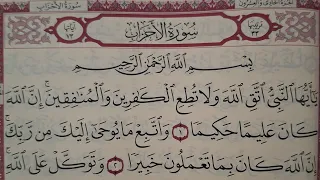 سُورَةُ الأَحْزَابِ
بِسْمِ اللَّهِ الرَّحْمَٰنِ الرَّحِيمِ
يَا أَيُّهَا النَّبِيُّ اتَّقِ اللَّهَ وَلَا تُطِعِ الْكَافِرِينَ وَالْمُنَافِقِينَ إِنَّ اللَّهَ
كَانَ عَلِيمًا حَكِيمًا ١ وَاتَّبِعْ مَا يُوحَىٰ إِلَيْكَ مِن رَّبِّكَ
إِنَّ اللَّهَ كَانَ بِمَا تَعْمَلُونَ خَبِيرًا ٢ وَتَوَكَّلْ عَلَى اللَّهِ